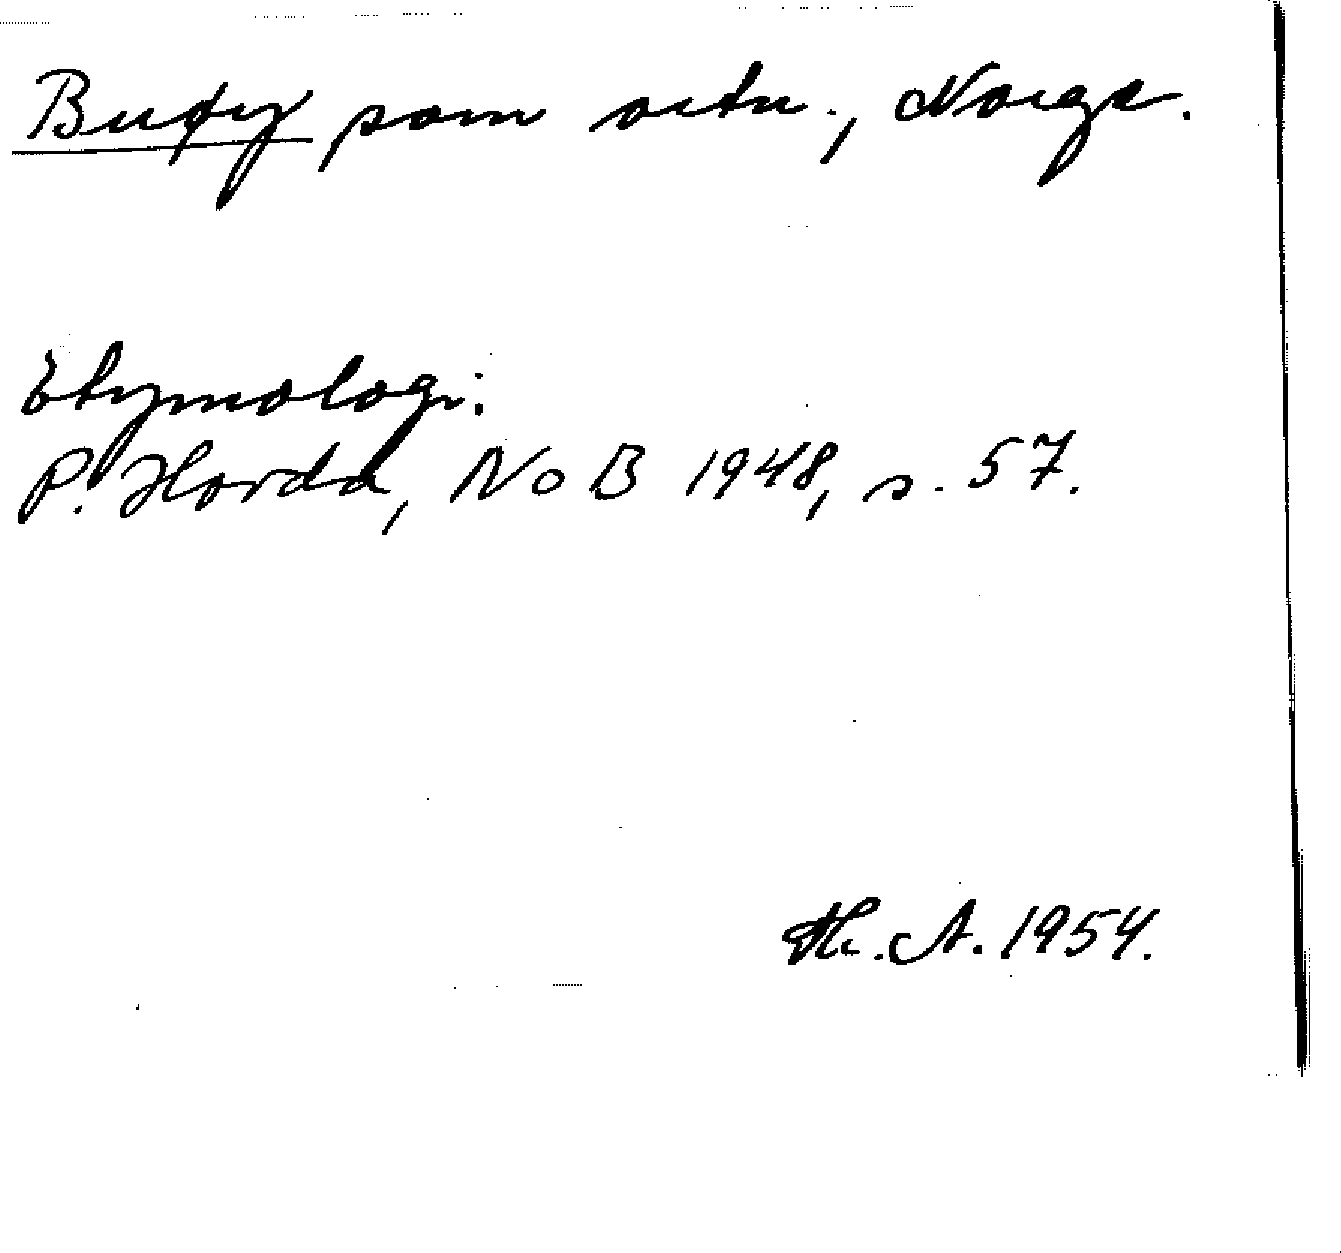 Bufy som ortn., Norge.
Etymologi:
P. Hovda, NoB 1948, s. 57.
Th. A. 1954.